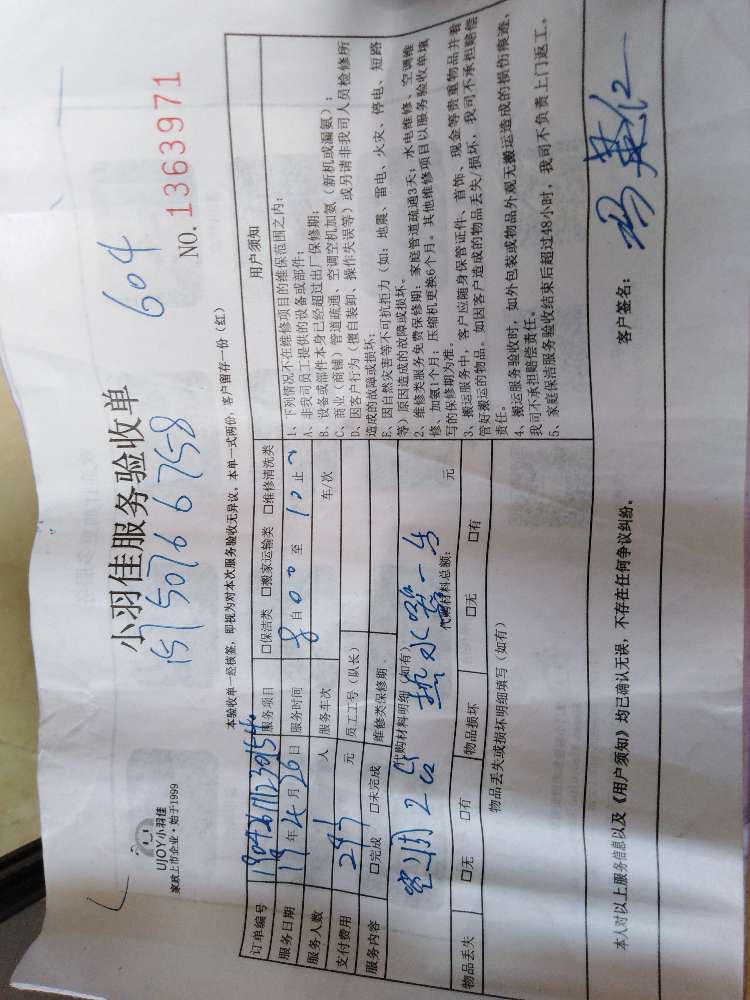 UJOY小羽佳
家政上市企业·始于1999
小羽佳服务验收单
15150766758
604
NO. 1363971
本验收单一经核签，即视为对本次服务验收无异议，本单一式两份，客户留存一份（红）
订单编号
服务项目 口保洁类 口搬家运输类 口维修清洗类
服务日期 19 年 4 月 26 日 服务时间 8 自 00 至 12 止
服务人数 人 服务车次 车/次
支付费用 元 员工工号(队长)
服务内容 口完成 口未完成 维修类保修期
代购材料明细（如有）
空调2台 热水器一台
代购材料总额： 元
物品丢失 口无 口有 物品损坏 口无 口有
物品丢失或损坏明细填写（如有）
用户须知
1、下列情况不在维修项目的维保范围之内：
A、非我司员工提供的设备或部件；
B、设备或部件本身已经超过出厂保修期；
C、商业（商铺）管道疏通、空调空机加氨（新机或漏氨）；
D、因客户行为（擅自装卸、操作失误等）或另请非我司人员检修所
造成的故障或损坏；
E、因自然灾害等不可抗拒力（如：地震、雷电、火灾、停电、短路
等）原因造成的故障或损坏。
2、维修类服务免费保修期：家庭管道疏通3天；水电维修、空调维
修、加氨1个月；压缩机更换6个月。其他维修项目以服务验收单填
写的保修期为准。
3、搬运服务中，客户应随身保管证件、首饰、现金等贵重物品并看
管好搬运的物品。如因客户造成的物品丢失/损坏，我司不承担赔偿
责任。
4、搬运服务验收时，如外包装或物品外观无搬运造成的损伤痕迹，
我司不承担赔偿责任。
5、家庭保洁服务验收结束后超过48小时，我司不负责上门返工。
本人对以上服务信息以及《用户须知》均已确认无误，不存在任何争议纠纷。
客户签名：